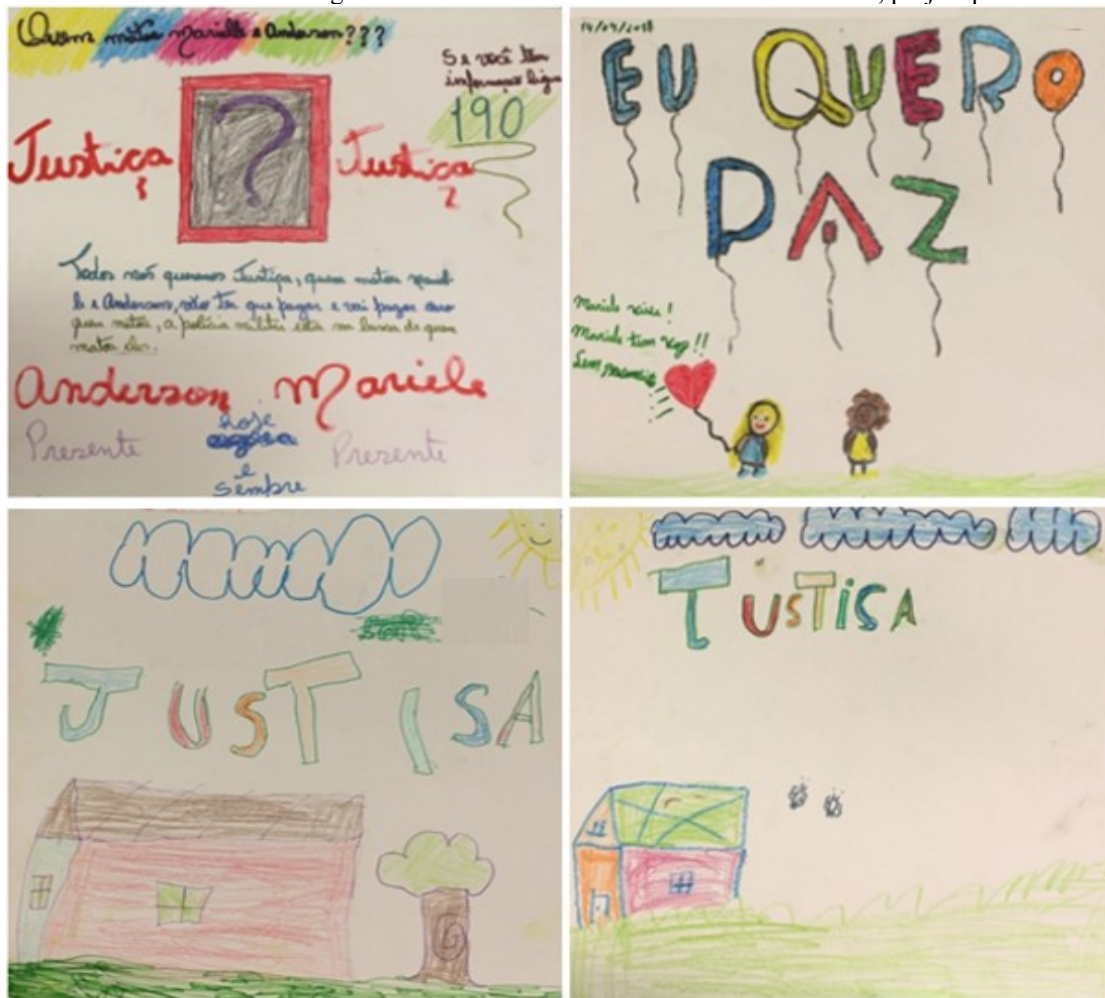 Quem matou Marielle e Anderson???
Se você tem
informação ligue
190
Justiça
?
Justiça
Todos nós queremos Justiça, quem matou
e Anderson, vão ter que pagar e vai pagar
quem matou, a polícia militar está na busca de quem
matou eles.
Anderson Mariele
Presente hoje Presente
e
sempre
14/04/2018
EU QUERO
PAZ
Mariele vive!
Mariele tem voz!!
Sem
JUSTISA
JUSTISA